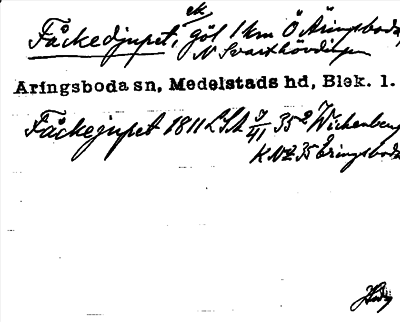 Fåckedjupet, ek, göl 1 km Ö Åringsboda,
N Svarthövdingen
Åringsboda sn, Medelstads hd, Blek. l.
Fåckejupet 1811 LSA 35² Wickenberg
KNL 35 Eringsboda